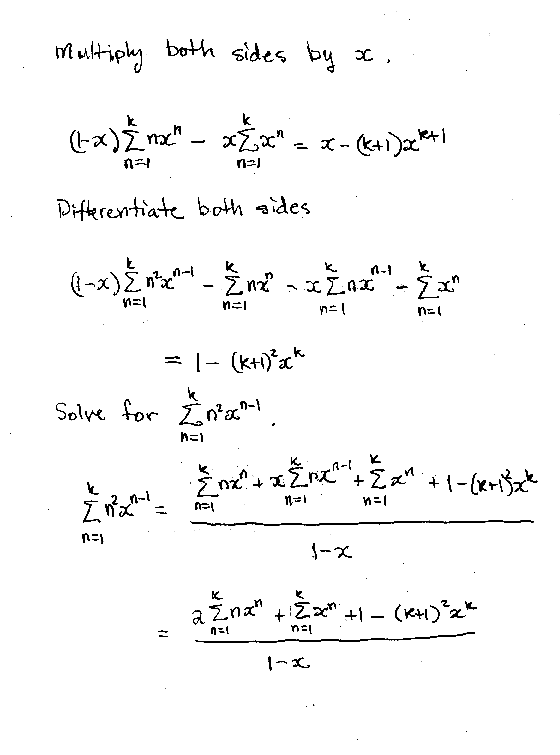 Multiply both sides by x.
(1-x) \sum_{n=1}^{k} nx^n - x \sum_{n=1}^{k} x^n = x - (k+1)x^{k+1}
Differentiate both sides
(1-x) \sum_{n=1}^{k} n^2x^{n-1} - \sum_{n=1}^{k} nx^n - x \sum_{n=1}^{k} nx^{n-1} - \sum_{n=1}^{k} x^n
= 1 - (k+1)^2 x^k
Solve for \sum_{n=1}^{k} n^2x^{n-1}.
\sum_{n=1}^{k} n^2x^{n-1} = \frac{\sum_{n=1}^{k} nx^n + x \sum_{n=1}^{k} nx^{n-1} + \sum_{n=1}^{k} x^n + 1 - (k+1)^2 x^k}{1-x}
= \frac{2 \sum_{n=1}^{k} nx^n + \sum_{n=1}^{k} x^n + 1 - (k+1)^2 x^k}{1-x}